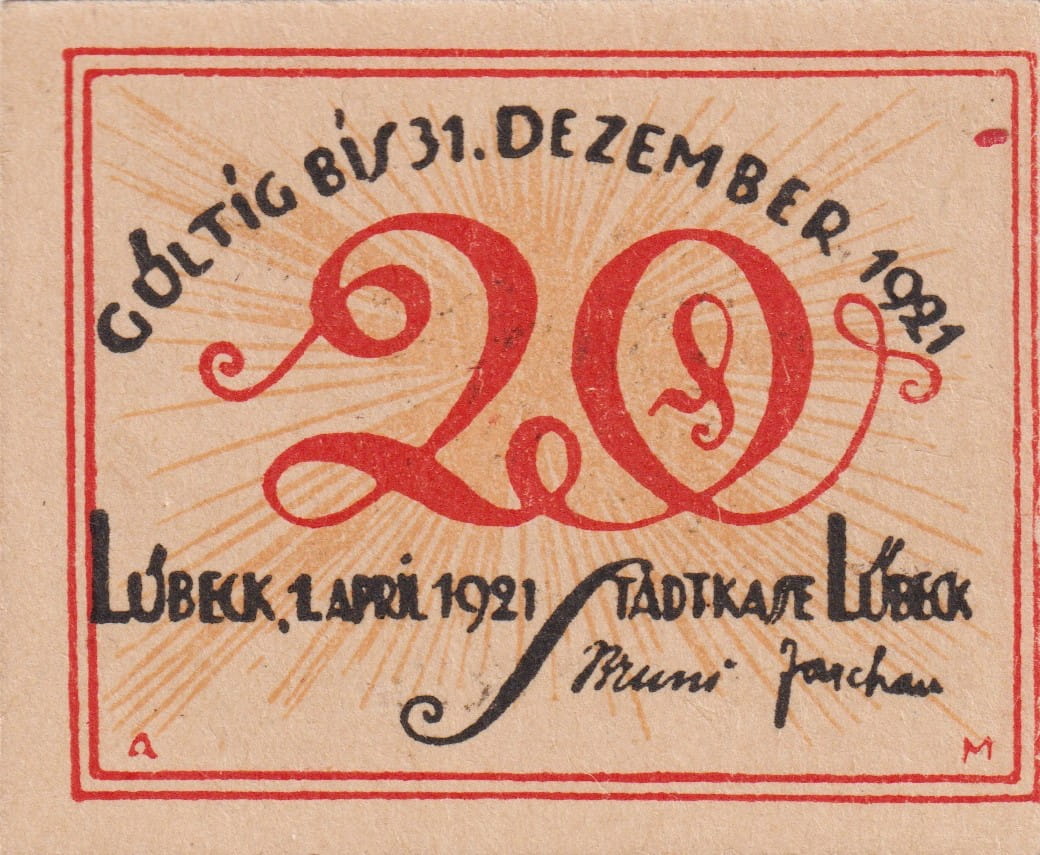 GÜLTIG BIS 31. DEZEMBER 1921
20 ₰
LÜBECK, 1. APRIL 1921 STADTKASSE LÜBECK
A M